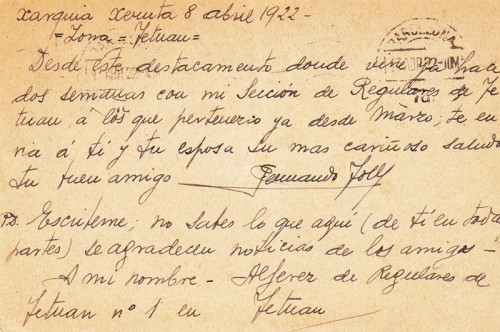 Xarquia Xeruta 8 abril 1922 -
= Zona = Tetuan =
Desde este destacamento donde vine ya hace
dos semanas con mi Sección de Regulares de Te
tuan á los que pertenezco ya desde Marzo; te en
via á ti y tu esposa su mas cariñoso saludo
tu buen amigo Fernando
P.D. Escribeme; no sabes lo que aquí (de ti en todas
partes) se agradecen noticias de los amigos -
A mi nombre - Alferez de Regulares de
Tetuan nº 1 en Tetuan
BARCELONA